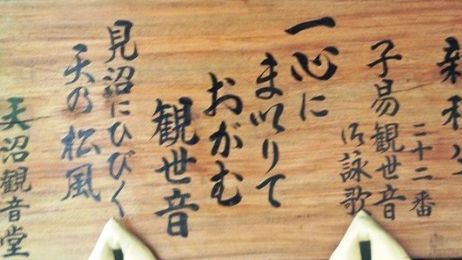 新秩父
二十二番
子易観世音
御詠歌
一心に
まいりて
おがむ
観世音
見沼にひびく
天の松風
天沼観音堂